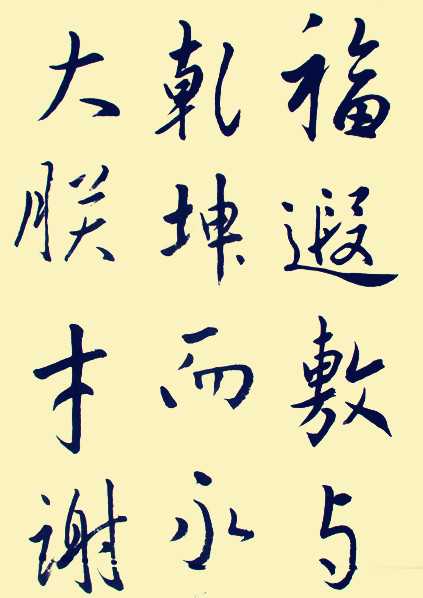 福遐敷与
乾坤而永
大朕才谢